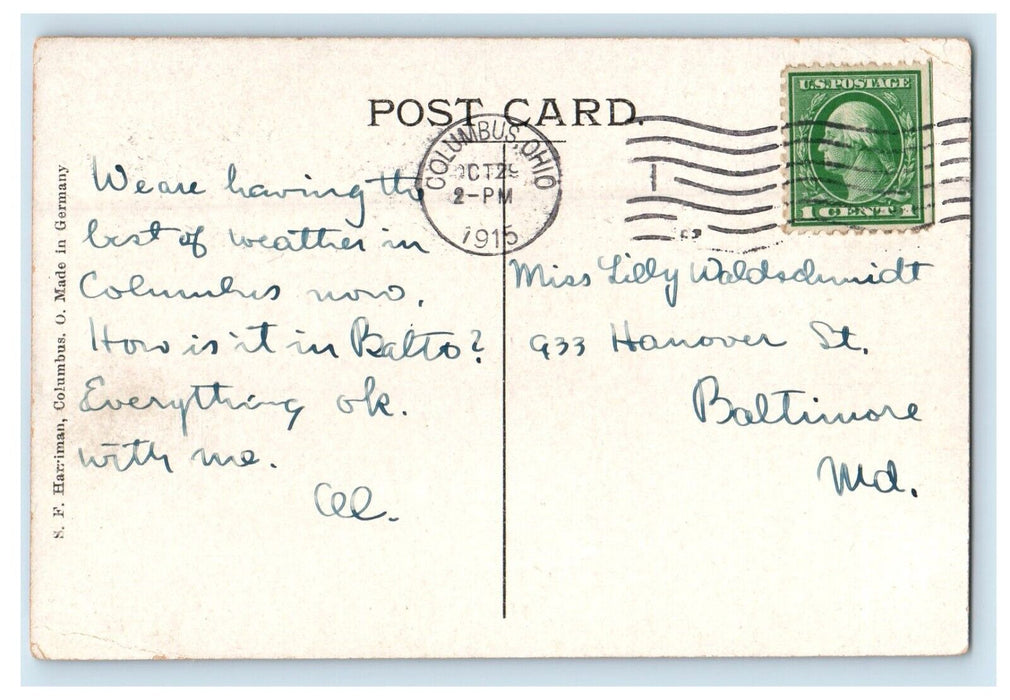 POST CARD.
U.S. POSTAGE
1 CENT 1
COLUMBUS, OHIO
OCT 29
2-PM
1915
We are having the
best of weather in
Columbus now.
How is it in Balto?
Everything ok.
with me.
Al.
Miss Lilly Waldschmidt
933 Hanover St.
Baltimore
Md.
S. F. Harriman, Columbus, O. Made in Germany